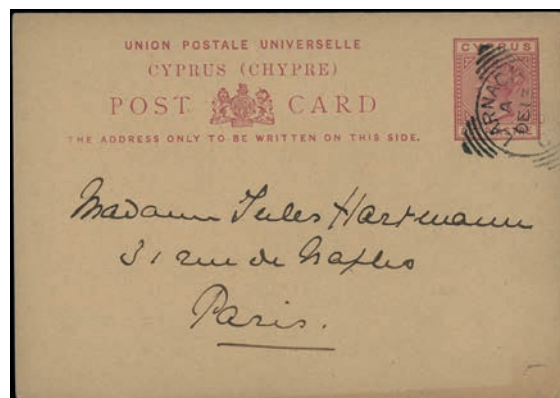 UNION POSTALE UNIVERSELLE
CYPRUS (CHYPRE)
POST CARD
THE ADDRESS ONLY TO BE WRITTEN ON THIS SIDE.
CYPRUS
ARNAC
A
DE 12
Madame Jules Hartmann
31 rue de Naples
Paris.